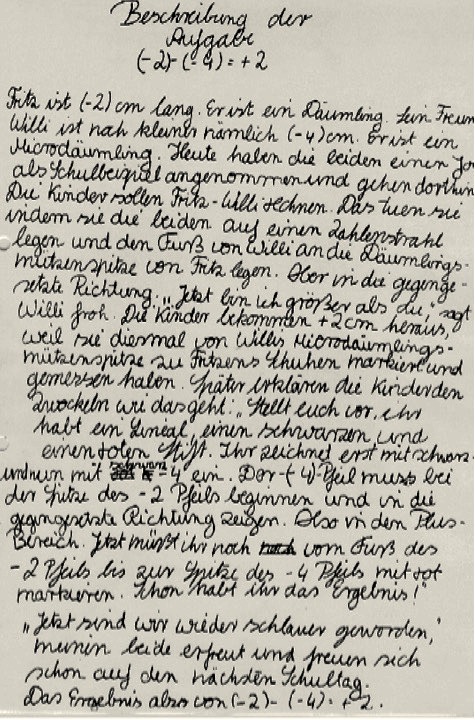 Beschreibung der
Aufgabe
(-2)-(-4)=+2
Fritz ist (-2) cm lang. Er ist ein Däumling. Sein Freun
Willi ist noch kleiner nämlich (-4)cm. Er ist ein
Microdäumling. Heute haben die beiden einen Jo
als Schulbeispiel angenommen und gehen dorthin
Die Kinder sollen Fritz-Willi rechnen. Das tuen sie
indem sie die beiden auf einen Zahlenstrahl
legen und den Fuß von Willi an die Däumlings-
mützenspitze von Fritz legen. Aber in die gegenge-
setzte Richtung. „Jetzt bin ich größer als du," sagt
Willi froh. Die Kinder bekommen +2cm heraus,
weil sie diesmal von Willis Microdäumlings-
mützenspitze zu Fritzens Schuhen markiert und
gemessen haben. Später erklären die Kinder den
Zwockeln wie das geht: „Stellt euch vor, ihr
habt ein Lineal, einen schwarzen und
einen roten Stift. Ihr zeichnet erst mit schwarz-
und nun mit schwarz -4 ein. Der -(4) Pfeil muss bei
der Spitze des -2 Pfeils beginnen und in die
gegengesetzte Richtung zeigen. Also in den Plus-
Bereich. Jetzt müßt ihr noch vom Fuß des
-2 Pfeils bis zur Spitze des -4 Pfeils mit rot
markieren. Schon habt ihr das Ergebnis!"
„Jetzt sind wir wieder schlauer geworden,"
meinen beide erfreut und freuen sich
schon auf den nächsten Schultag.
Das Ergebnis also von (-2)-(-4)=+2.